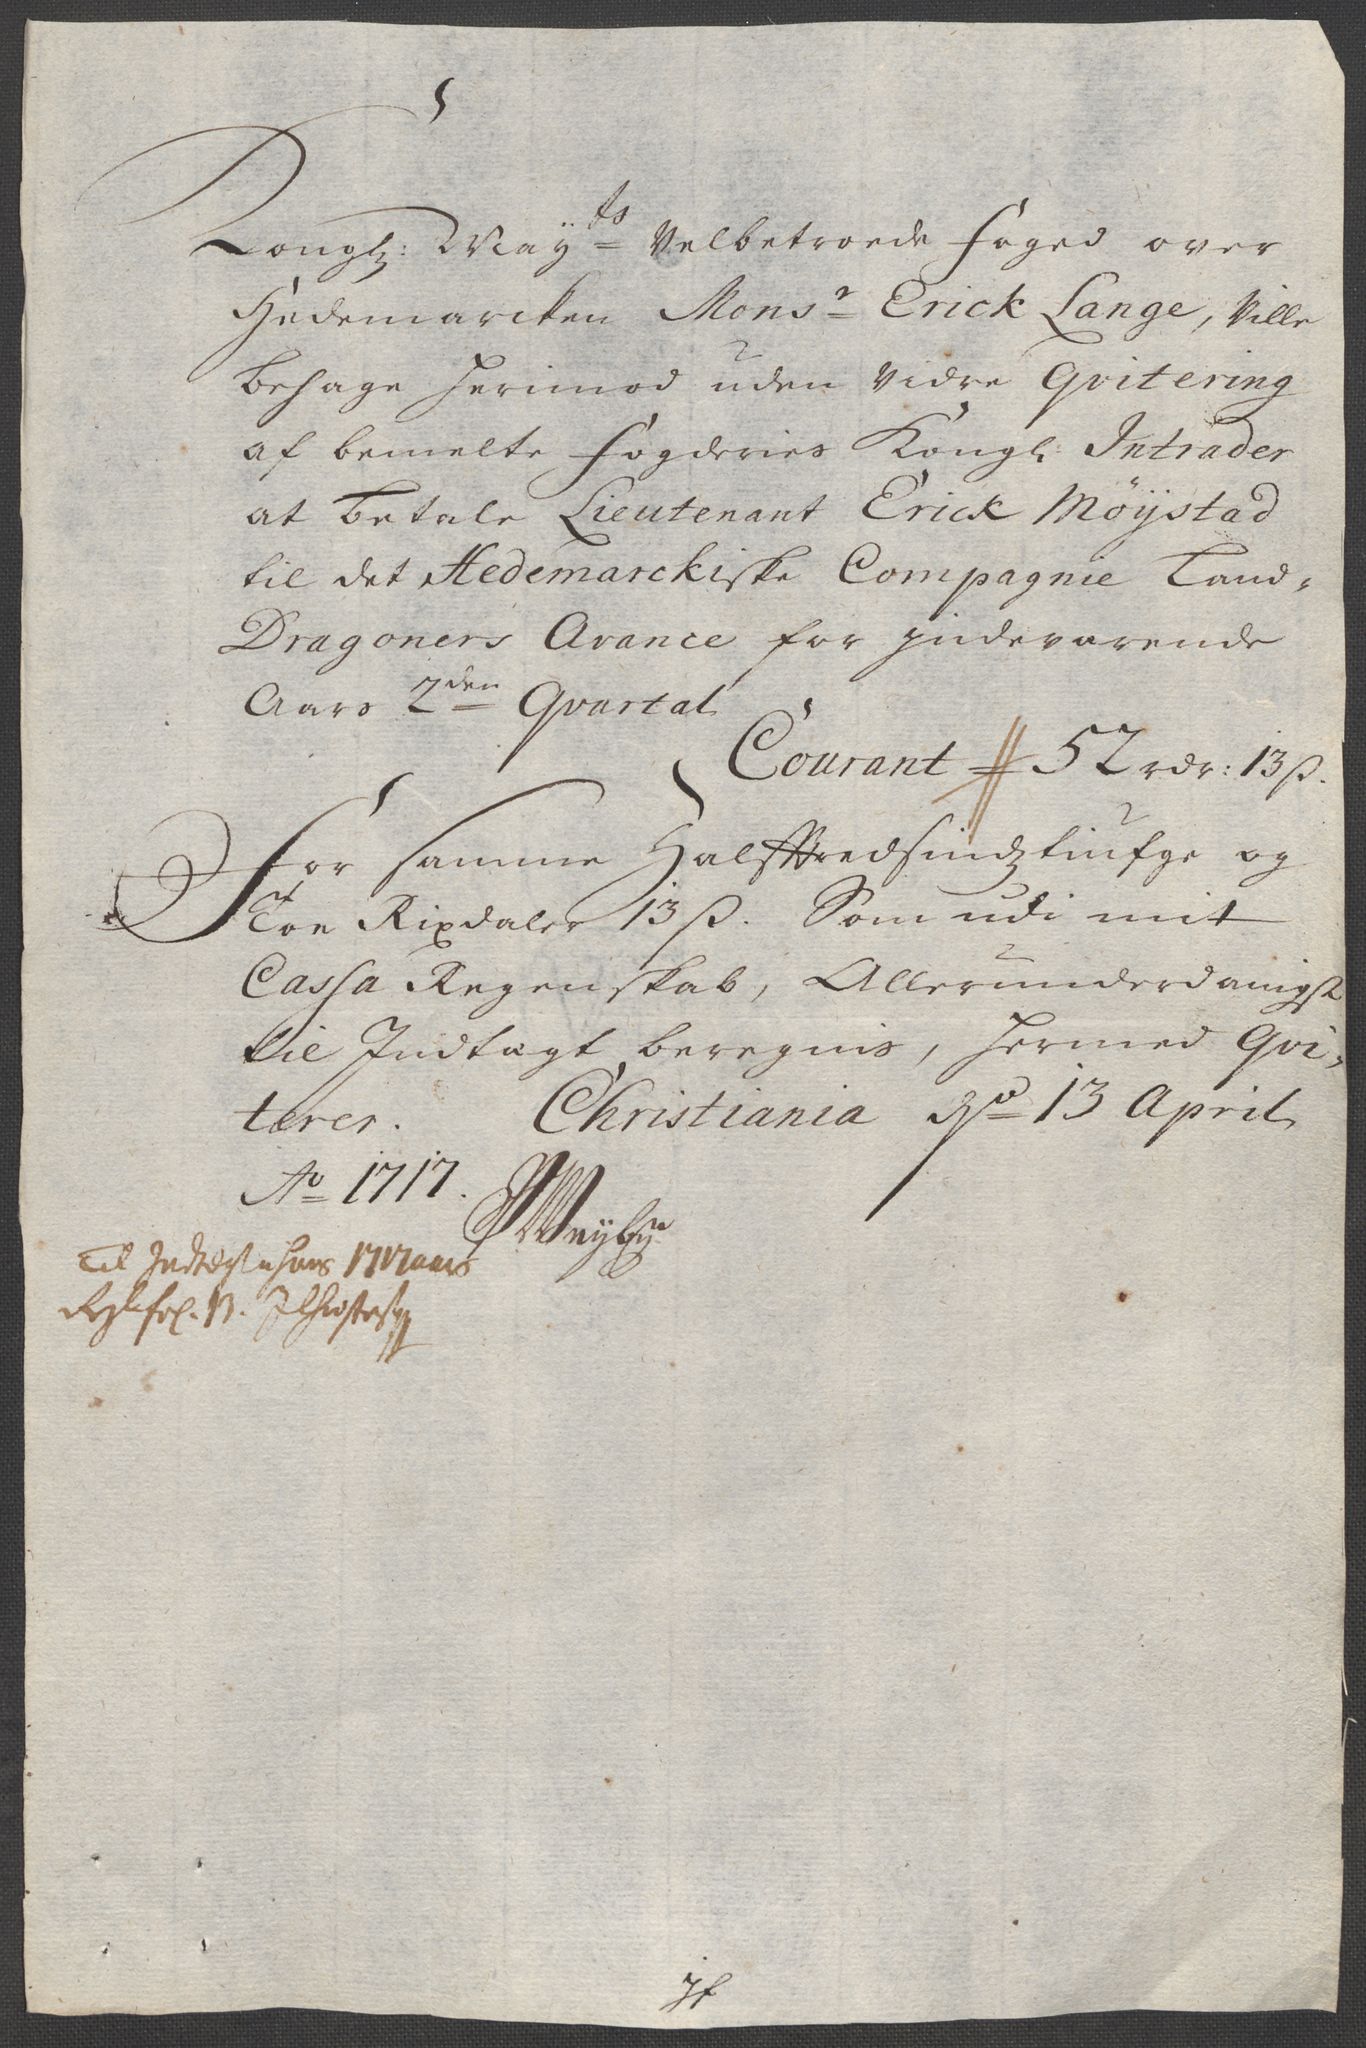 Kongl: Mayts Velbetroede Foged over
Hedemarcken Monsr Erick Lange, Ville
behage herimod uden Vidre Qvitering
af bemelte Fogderies Kongl: Intrader
at betale Lieutenant Erick Möÿstad
til det Hedemarckiske Compagnie Land-
Dragoners Avance for indeværende
Aars 2den Qvartal
Courant 52 rdr: 13 ß.
For samme Halftredsindztiufge og
Toe Rixdaler 13 ß. Som udi mit
Cassa Regenskab, Allerunderdanigst
til Indtægt beregnis, hermed Qvi-
terer. Christiania dn 13 April
Ao 1717.
Til Indtægt u hans 1717 aars